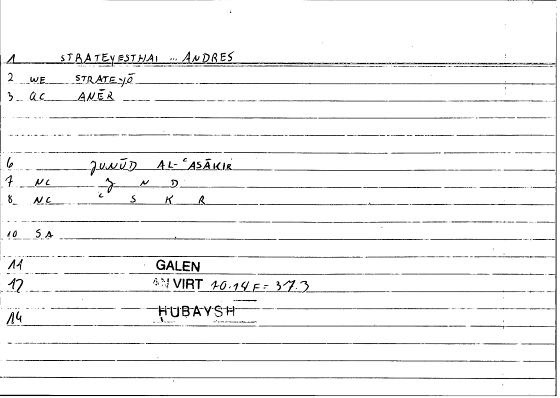 1 STRATEYESTHAI ... ANDRES
2 WE STRATEYŌ
3 QC ANĒR
6 JUNŪD AL-ʿASĀKIR
7 NC J N D
8 NC ʿ S K R
10 SA
11 GALEN
12 AN VIRT 10.14 F = 37.3
14 HUBAYSH